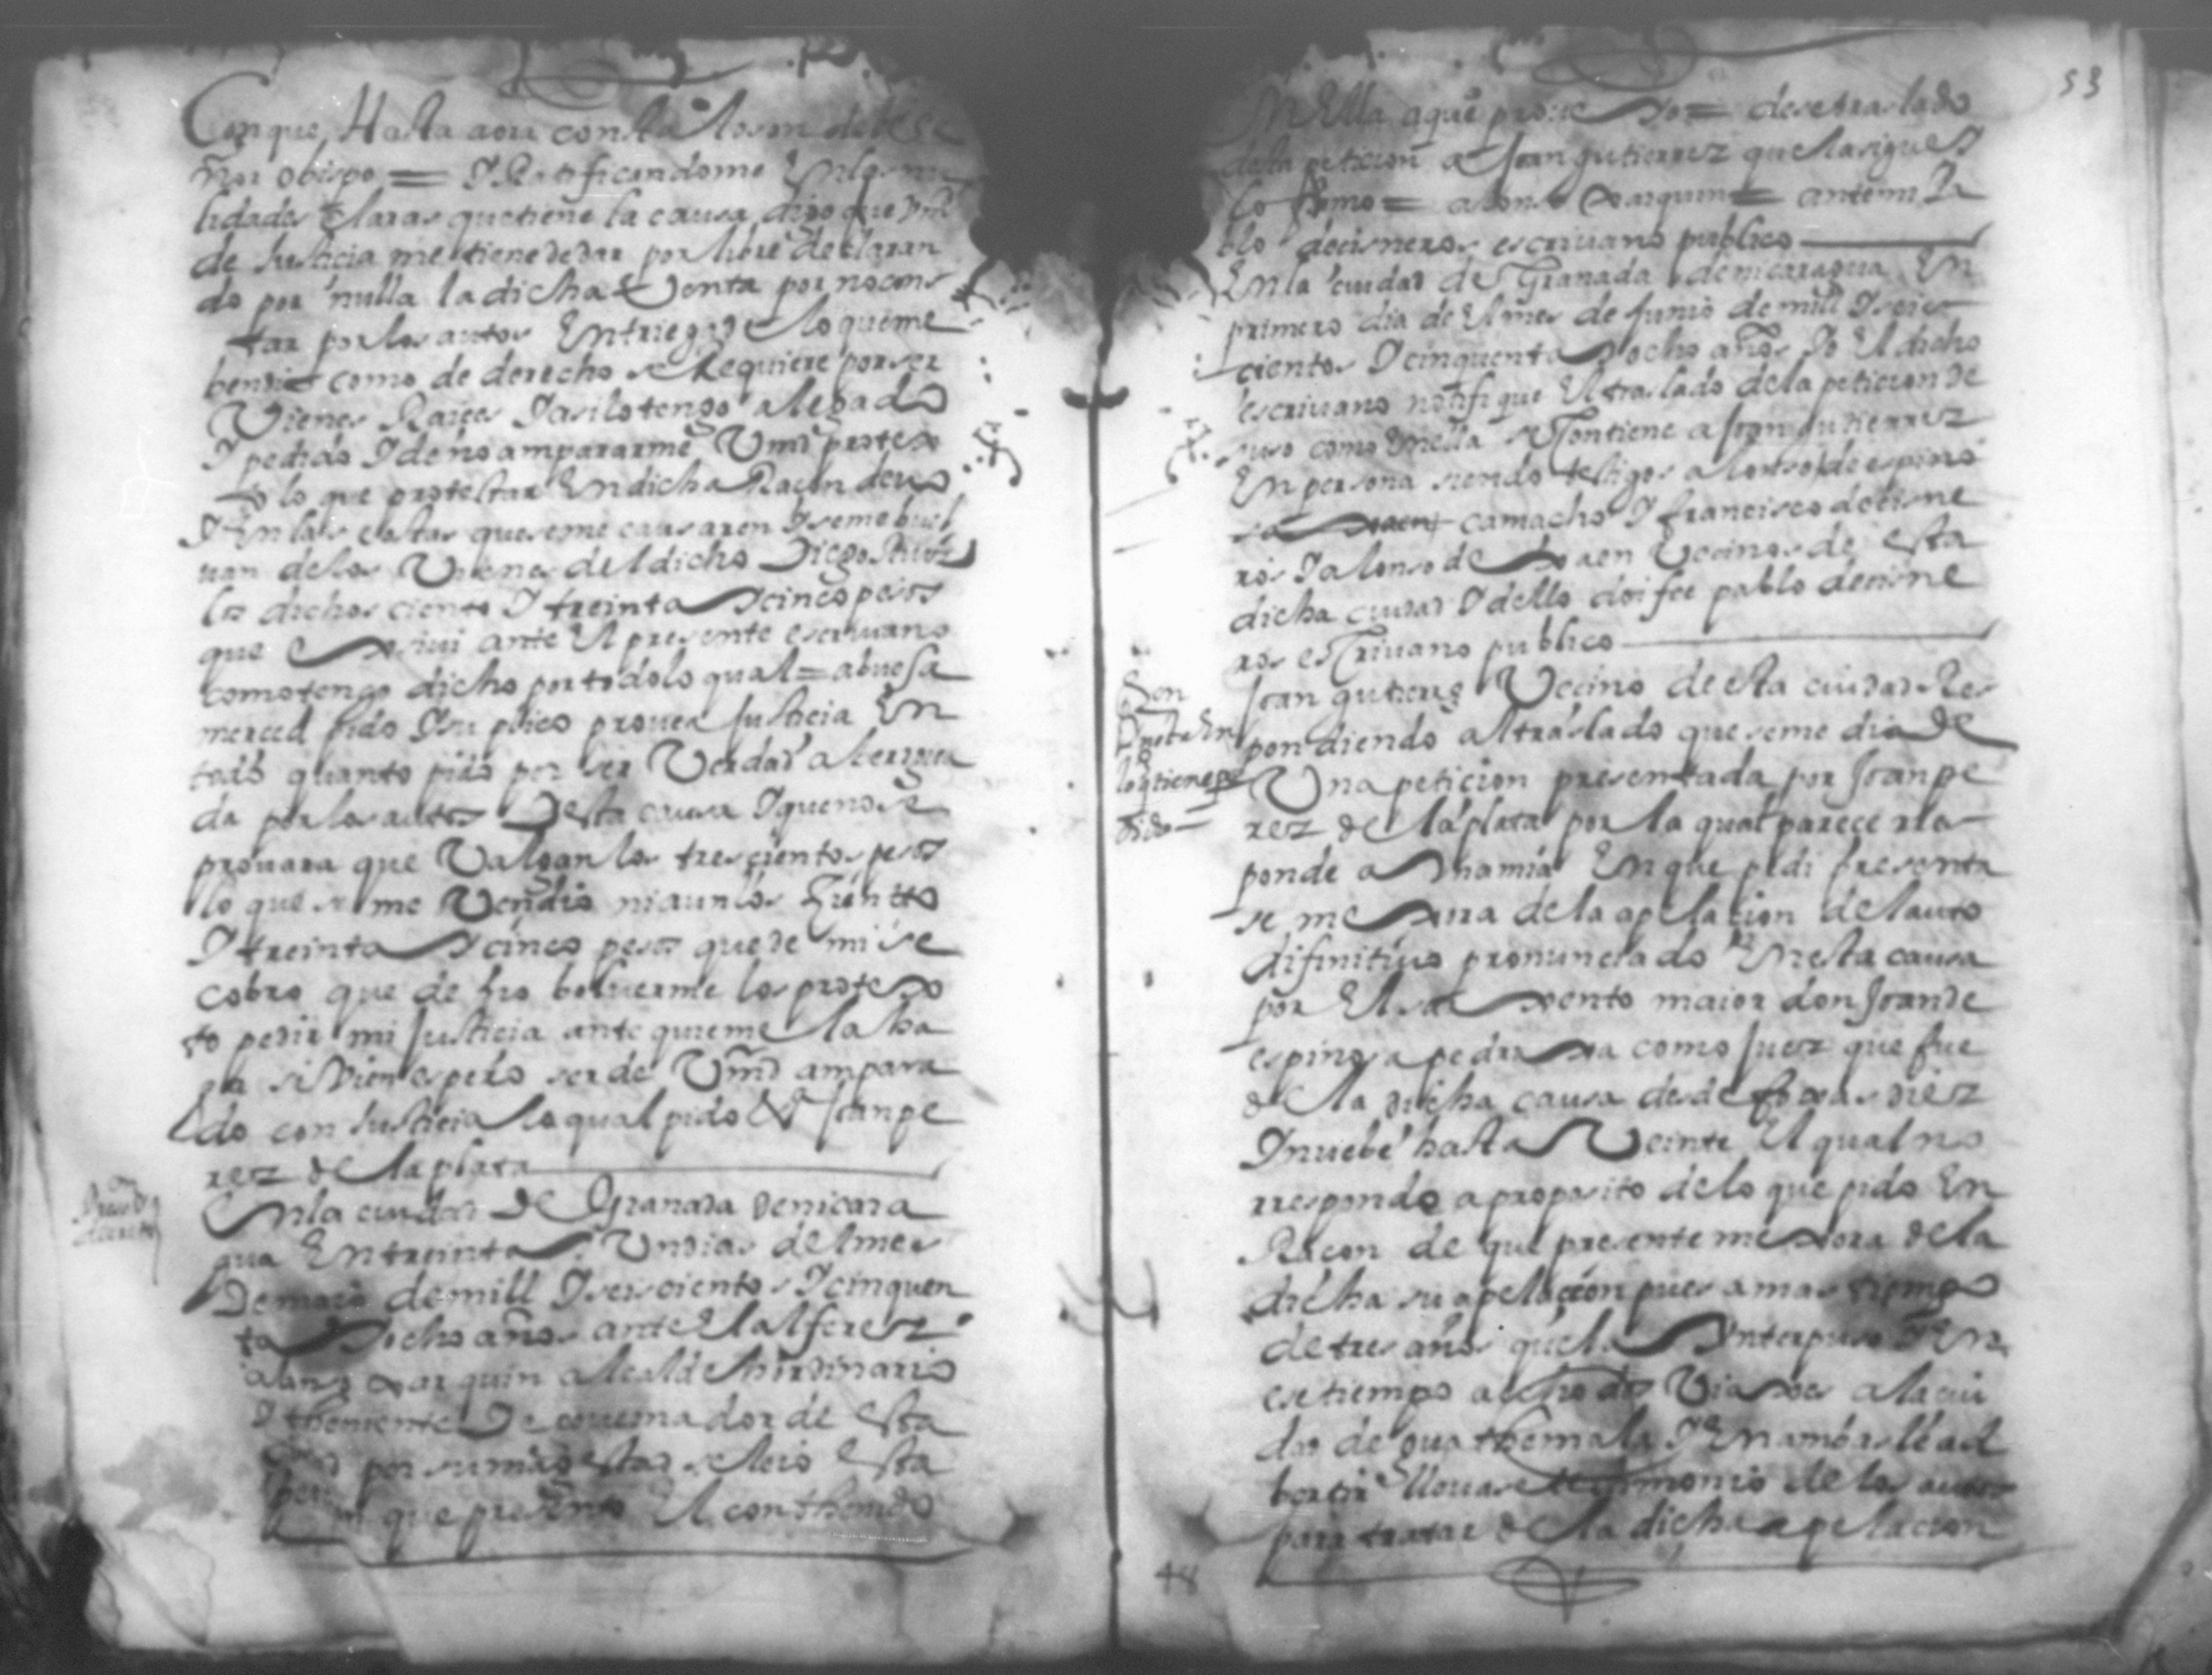 Con que Hasta aora consta los an de
ñor obispo = I Ratificandome En las nu
lidades Claras que tiene la causa digo que Vmd
de Justicia me tiene de dar por libre declaran
do por nulla la dicha Venta por no cons
tar por los autos Entriega de lo que me
bendio como de derecho se Requiere por ser
Vienes Raices I asi lo tengo alegado
I pedido I de no ampararme Vmd protes
to lo que protestar En dicha Raçon devo
I En las costas que se me causaren I se me buel
uan de los Vienes del dicho Diego
los dichos ciento I treinta I cinco pesos
que exsiui ante El presente escriuano
como tengo dicho por todo lo qual = a buesa
merced pido I suplico prouea Justicia En
todo quanto pido por ser Verdad
da por los autos Desta causa I que no se
prouara que Valgan los trescientos pesos
lo que se me Vendio ni aun los Ziento
I treinta I cinco pesos que de mi se
cobro que de no boluerme los protes
to pedir mi Justicia ante quien me la ha
ga si Vien espero ser de Vmd ampara
do con Justicia lo qual pido Va Joan pe
rez de la plata
En la ciudad de Granada de nicara
gua En treinta I Un dias del mes
De maio de mill I seiscientos I cinquen
ta I ocho años ante El alferez
alonso xarquin alcalde hordinario
I theniente De gouernador de Esta
por su magestad se leio Esta
que presento El conthenido
53
En Ella a que proue io = de se traslado
de la peticion a Joan gutierrez que la sigue I
lo firmo = alonso xarquin = ante mi Pa
blo de cisneros escriuano publico
En la ciudad de Granada de nicaragua En
primero dia de El mes de Junio de mill I seis
cientos I cinquenta I ocho años Io El dicho
escriuano notifique El traslado de la peticion de
suso como En ella se Contiene a Joan gutierrez
En persona siendo testigos alonso de espino
sa camacho I francisco de cisne
ros I alonso de Jaen Vecinos de Esta
dicha ciudad I dello doi fee pablo de cisne
ros esCriuano publico
Joan gutierrez Vecino de esta ciudad Res
pondiendo al traslado que se me dio de
Una peticion presentada por Joan pe
rez de la plata por la qual parece rres
ponde a Una mia En que pedi presenta
se mexora de la apelacion del auto
difinitiuo pronunciado En esta causa
por El sarxento maior don Joan de
espinosa pedruxa como Juez que fue
de la dicha causa desde foxas diez
I nuebe hasta Veinte El qual no
rrespondo a proposito de lo que pido En
Raçon de que presente mexora de la
dicha su apelacion pues a mas tiempo
de tres años que la Interpuso I En
ese tiempo a echo dos Viaxes a la ciu
dad de guathemala I En ambas le ad
berti lleuase testimonio de los autos
para tratar de la dicha apelacion
48